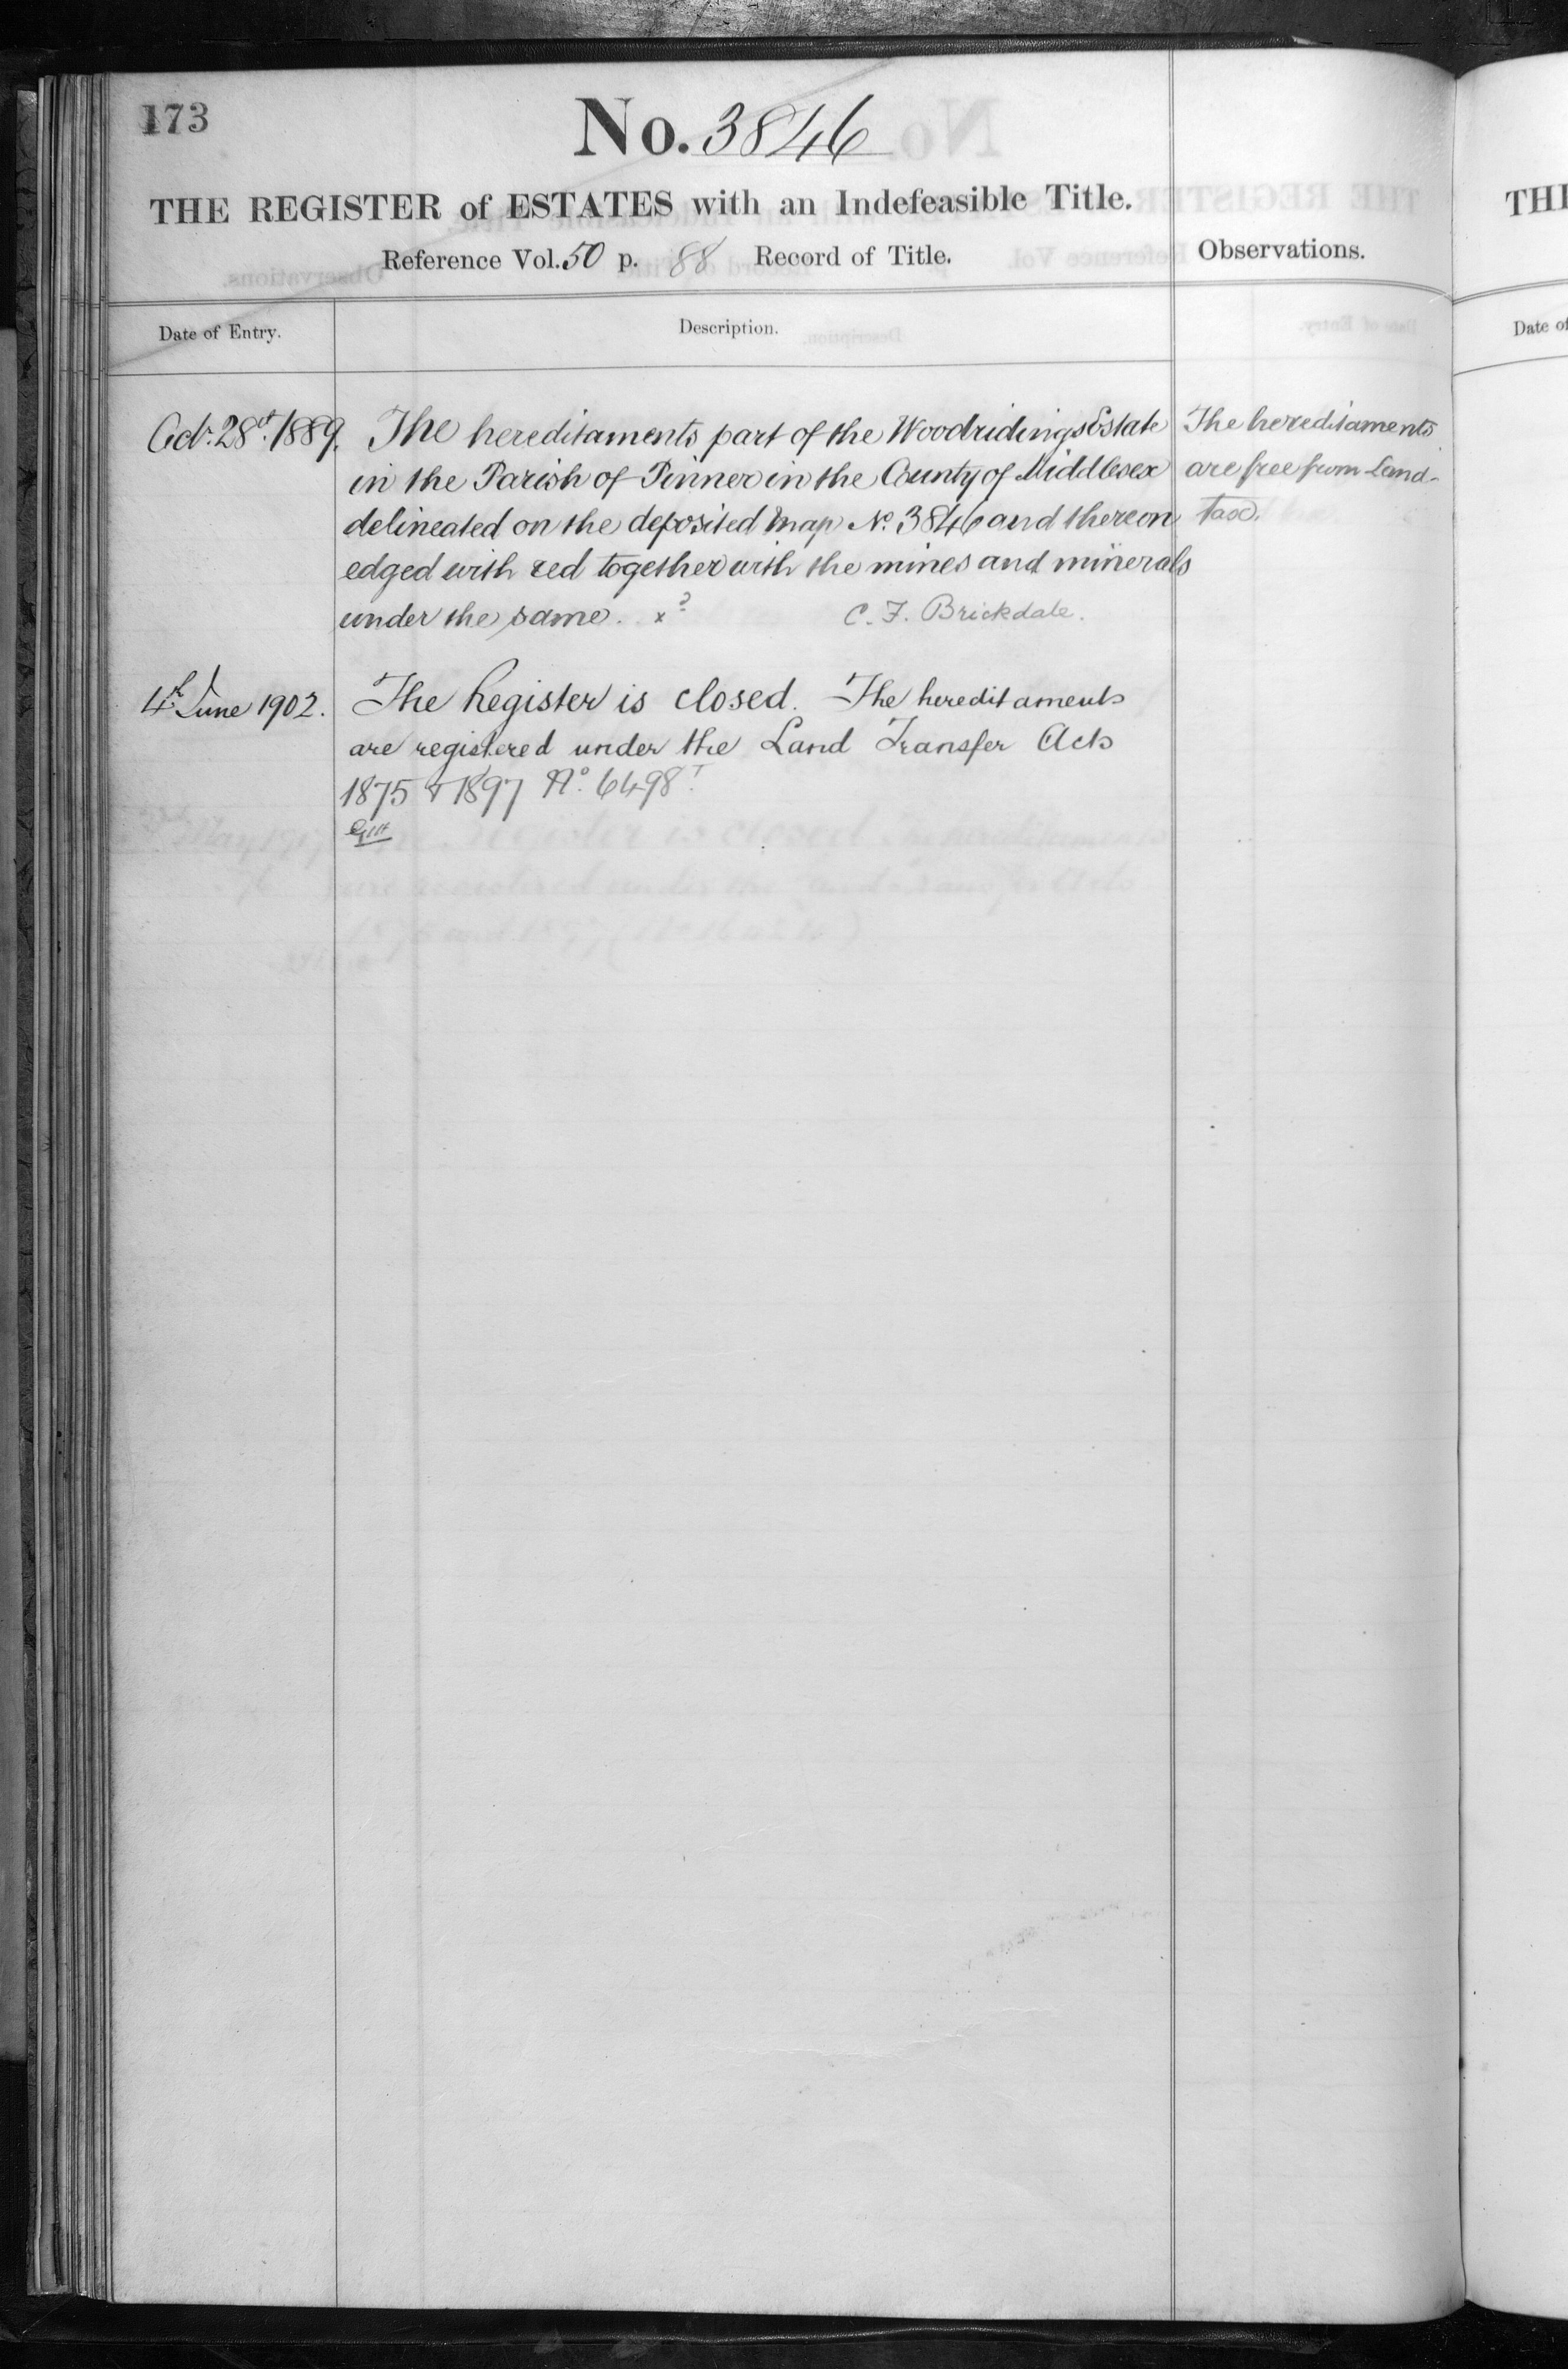 173
No. 3846
THE REGISTER of ESTATES with an Indefeasible Title.
Reference Vol. 50 p. 88 Record of Title.
Observations.
Date of Entry.
Description.
Oct. 28th 1889. The hereditaments part of the Woodridings Estate
in the Parish of Pinner in the County of Middlesex
delineated on the deposited map No. 3846 and thereon
edged with red together with the mines and minerals
under the same. x ?
C. F. Brickdale.
The hereditaments
are free from Land-
tax.
4th June 1902. The Register is closed. The hereditaments
are registered under the Land Transfer Acts
1875 & 1897 No. 6498.
THE
Date of